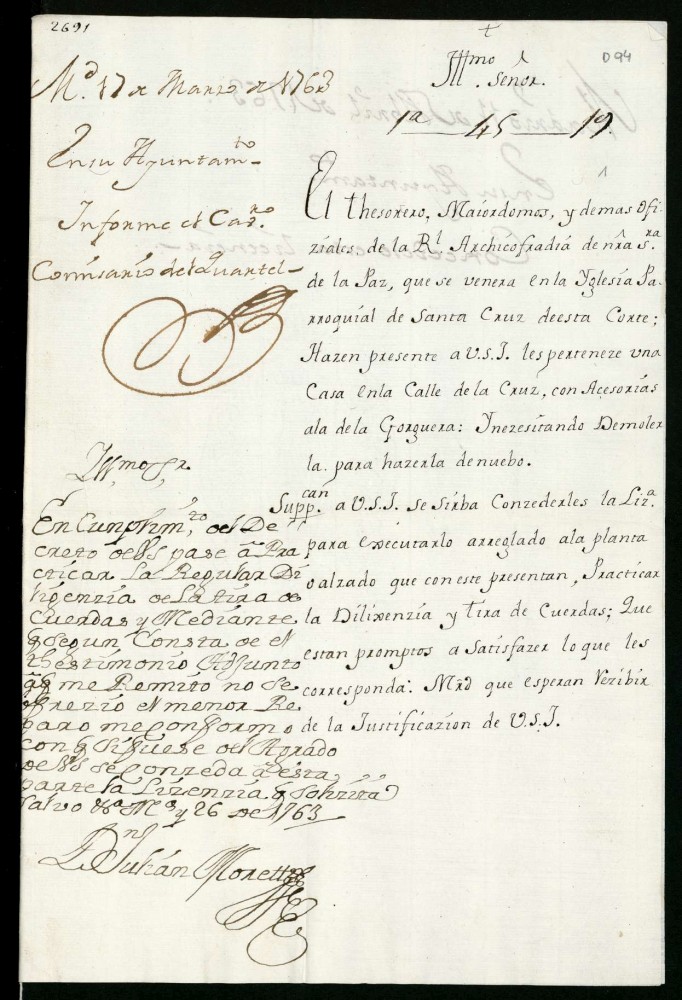 2691
D94
+
M.d 17 de Marzo de 1763
En su Ayuntam.to
Informe el Cav.ro
Comisario del Quartel
Yll.mo Señor.
1a 45 19.
1
El thesorero, Maiordomos, y demas Ofi-
ziales de la R.l Archicofradiá de nr̃a S.ra
de la Paz, que se venera en la Yglesia Pa-
rroquial de Santa Cruz deesta Corte;
Hazen presente a V.S.I. les perteneze una
Casa enla Calle de la Cruz, con Acesorias
ala de la Gorguera: Ynezesitando Demoler
la para hazerla denuebo.
Supp.can a V.S.I. se sirba Conzederles la Liz.a
para executarlo arreglado ala planta
o alzado que con este presentan, Practicar
la Dilixenzia y tira de Cuerdas; Que
estan promptos a Satisfazer lo que les
corresponda: Mrd̃ que esperan Rezibir
de la Justificazion de V.S.I.
Yll.mo S.r
En Cunplim.to del De
creto de VS pase â Pra
cticar La Regular Di
ligenzia de La tira de
Cuerdas y Mediante
q̃ segun Consta de el
thestimonio Adjunto
âq̃ me Remito no se
ofrezio el menor Re
paro me conformo
con q̃ si fuese del Agrado
de VS se conzeda â esta
parte la Lizenzia q̃ solizita
salvo &a M.d y 26 de 1763
D.n Julián Moret